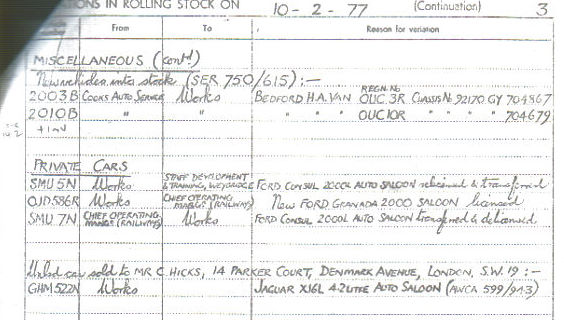 IN ROLLING STOCK ON 10 - 2 - 77 (Continuation) 3
From To Reason for variation
MISCELLANEOUS (cont'd)
New vehicles into stock (SER 750/615) :—
2003B COOKS AUTO SERVICE Works BEDFORD H.A. VAN REGN. No OUC 3R CHASSIS No 92170 GY 704867
2010B " " " " " OUC 10R " " " 704679
+ 1 INV
PRIVATE CARS
SMU 5N Works STAFF DEVELOPMENT & TRAINING, WEYBRIDGE FORD CONSUL 2000L AUTO SALOON relicensed & transferred
OJD 586R Works CHIEF OPERATING MANGR (RAILWAYS) New FORD GRANADA 2000 SALOON licensed
SMU 7N CHIEF OPERATING MANGR (RAILWAYS) Works FORD CONSUL 2000L AUTO SALOON transferred & delicensed
car sold to MR C. HICKS, 14 PARKER COURT, DENMARK AVENUE, LONDON, S.W. 19 :—
GHM 522N Works JAGUAR XJ6L 4.2 LITRE AUTO SALOON (AWCA 599/943)